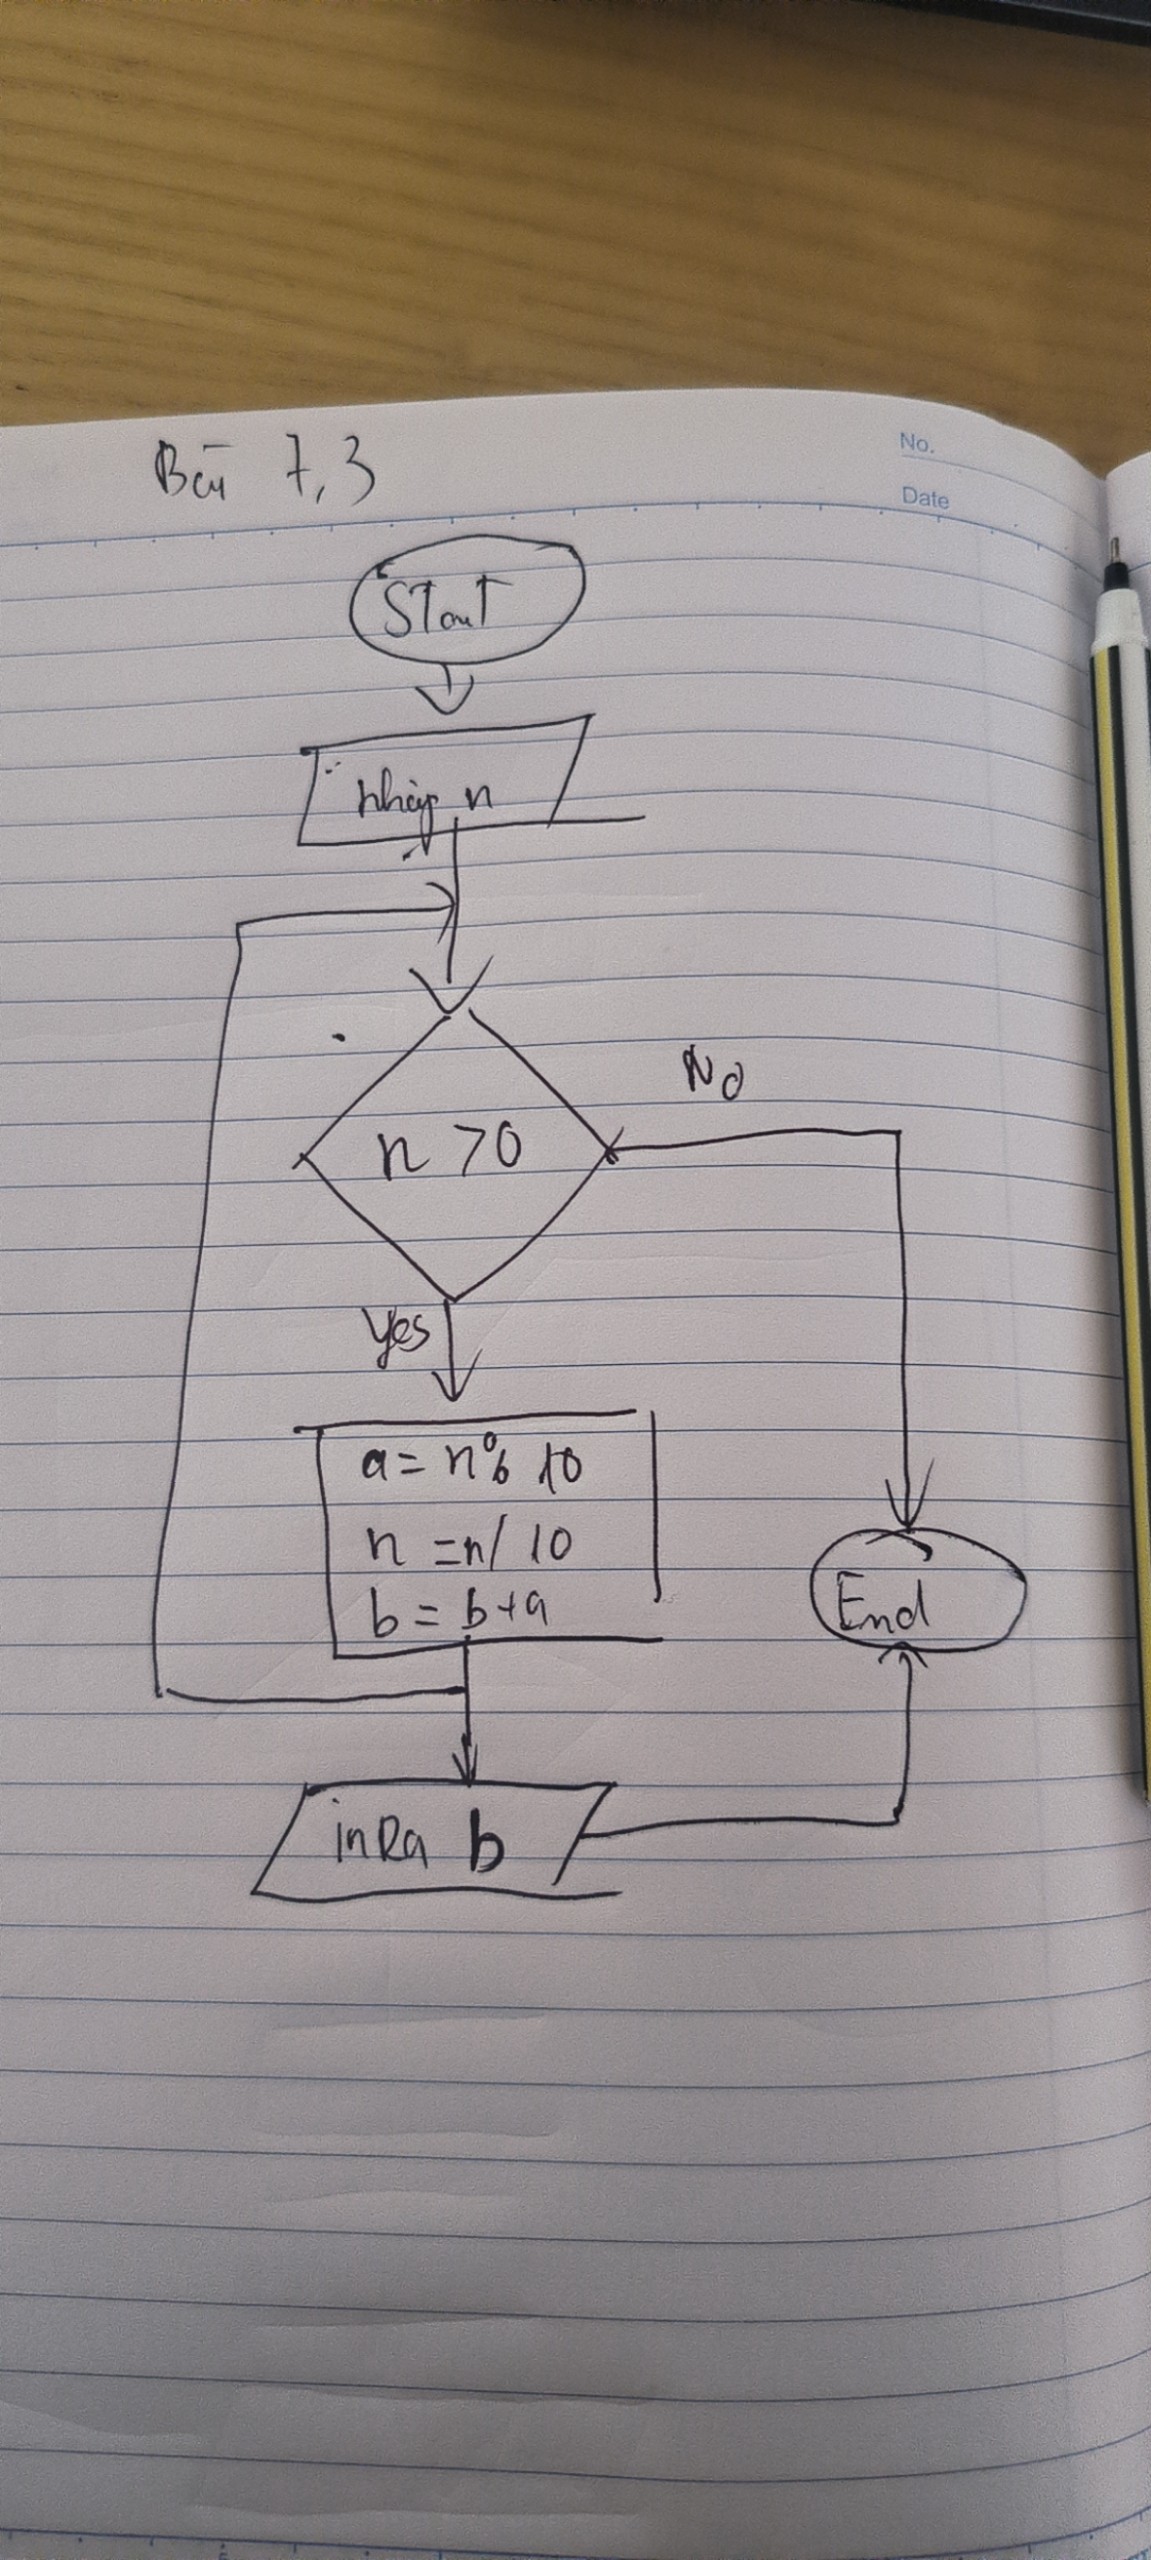 Bài 7,3
No.
Date
Start
nhập n
n >0
No
yes
a = n % 10
n = n / 10
b = b + a
End
in Ra b